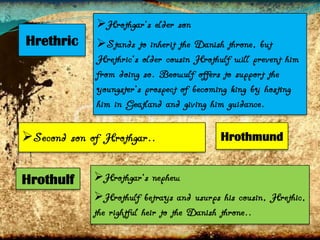 Hrethric
➢Hrothgar's elder son
➢Stands to inherit the Danish throne, but
Hrethric's older cousin Hrothulf will prevent him
from doing so. Beowulf offers to support the
youngster's prospect of becoming king by hosting
him in Geatland and giving him guidance.
➢Second son of Hrothgar..
Hrothmund
Hrothulf
➢Hrothgar's nephew
➢Hrothulf betrays and usurps his cousin, Hrethic,
the rightful heir to the Danish throne..